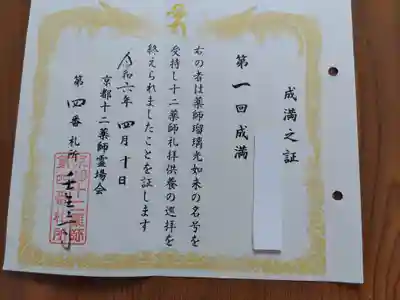 成満之証
第一回成満
右の者は薬師瑠璃光如来の名号を
受持し十二薬師礼拝供養の巡拝を
終えられましたことを証します
令和六年四月十日
京都十二薬師霊場会
第四番札所 壬生寺